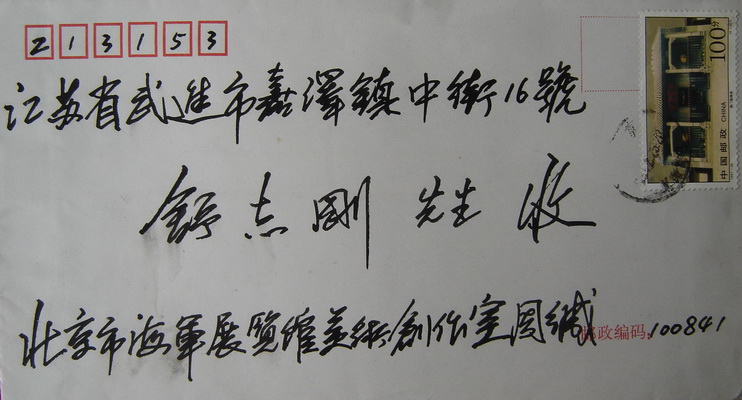 213153
100分
CHINA
中国邮政
江苏省武进市嘉澤镇中街16號
舒志剛 先生 收
北京市海軍展覽館美術創作室周缄
邮政编码:100841